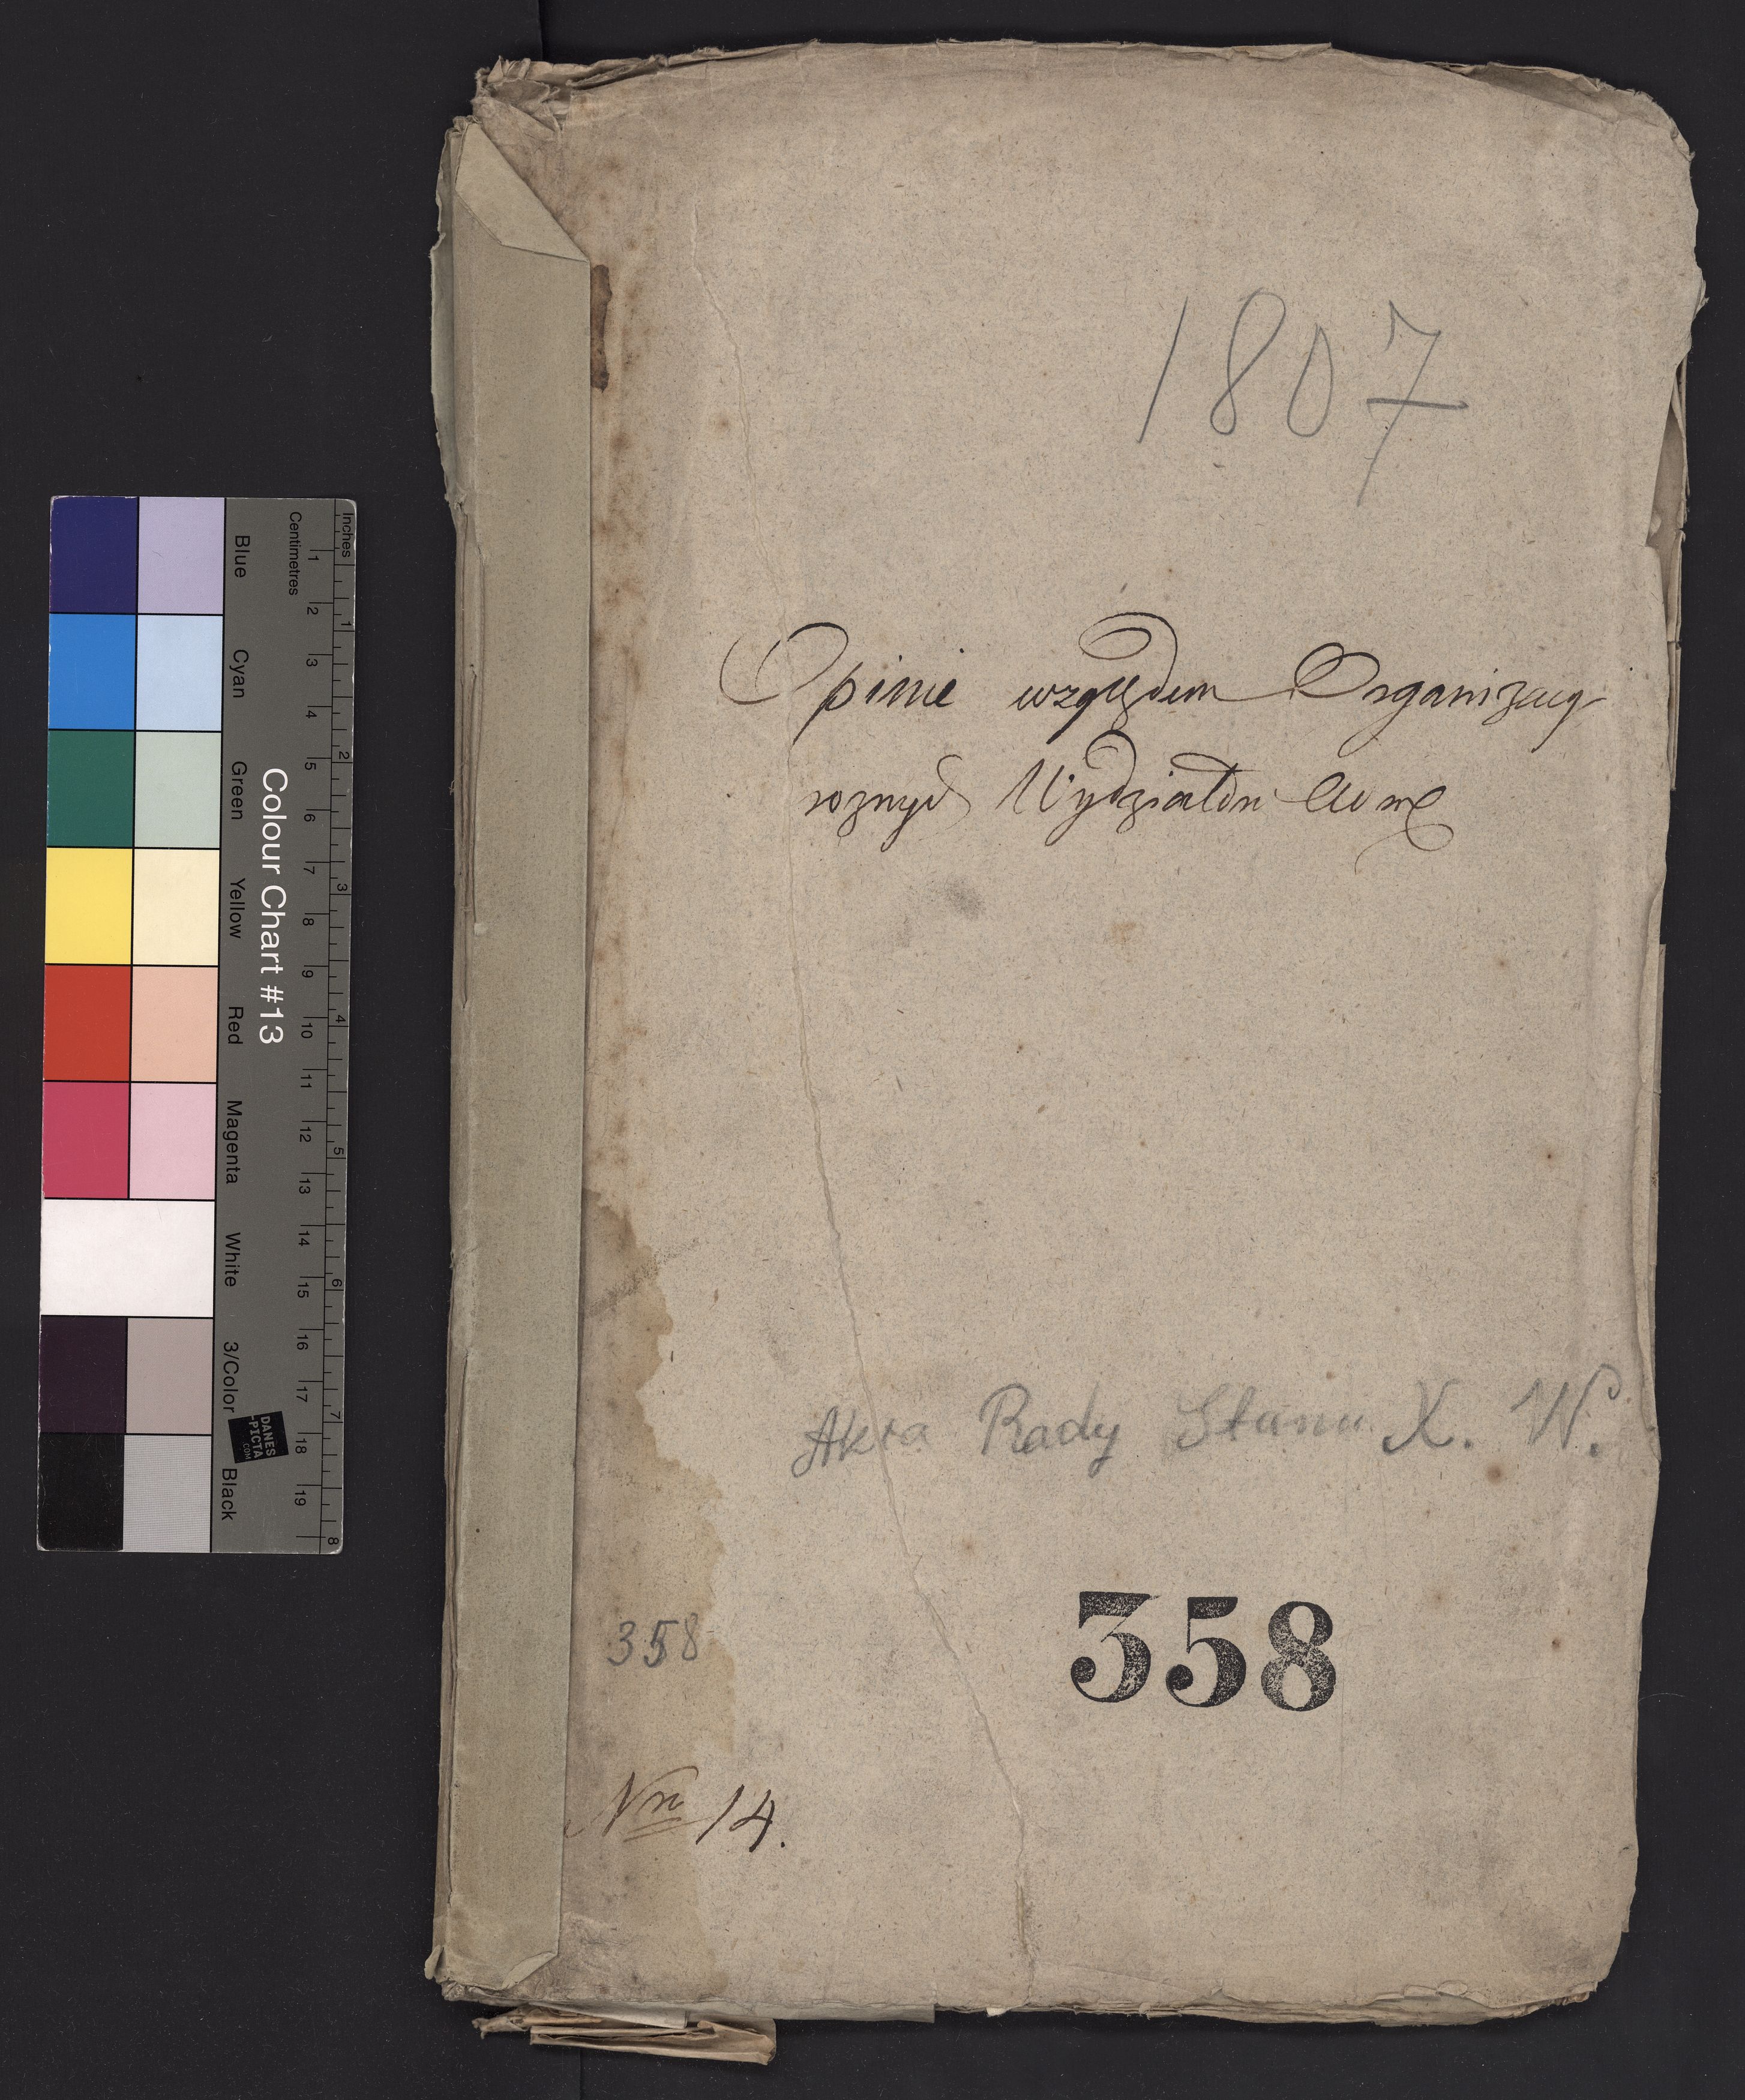 1807
Opinie względem Organizacyi
roznych Wydziałow
Akta Rady Stanu X. W.
358
358
Nro 14.
Inches
Centimetres
1 2 3 4 5 6 7 8 9 10 11 12 13 14 15 16 17 18 19
1 2 3 4 5 6 7 8
Colour Chart #13
Blue Cyan Green Yellow Red Magenta White 3/Color Black
DANES
-PICTA
.COM